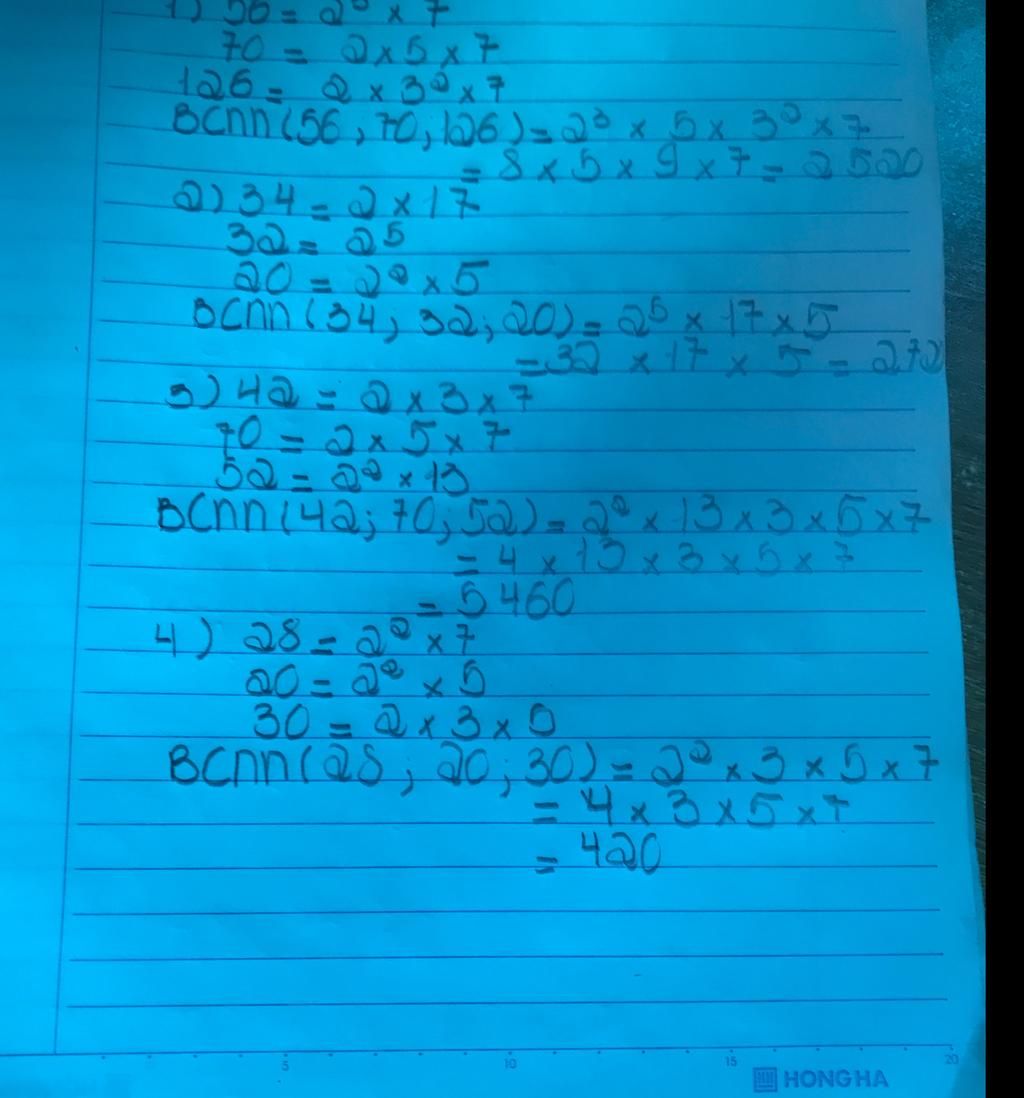 1) 56 = 2³ × 7
70 = 2 × 5 × 7
126 = 2 × 3² × 7
BCnn(56, 70, 126) = 2³ × 5 × 3² × 7
= 8 × 5 × 9 × 7 = 2520
2) 34 = 2 × 17
32 = 2⁵
20 = 2² × 5
BCnn(34; 32; 20) = 2⁵ × 17 × 5
= 32 × 17 × 5 = 272
3) 42 = 2 × 3 × 7
70 = 2 × 5 × 7
52 = 2² × 13
BCnn(42; 70, 52) = 2² × 13 × 3 × 5 × 7
= 4 × 13 × 3 × 5 × 7
= 5460
4) 28 = 2² × 7
20 = 2² × 5
30 = 2 × 3 × 5
BCnn(28; 20; 30) = 2² × 3 × 5 × 7
= 4 × 3 × 5 × 7
= 420
5 10 15 20
HONG HA